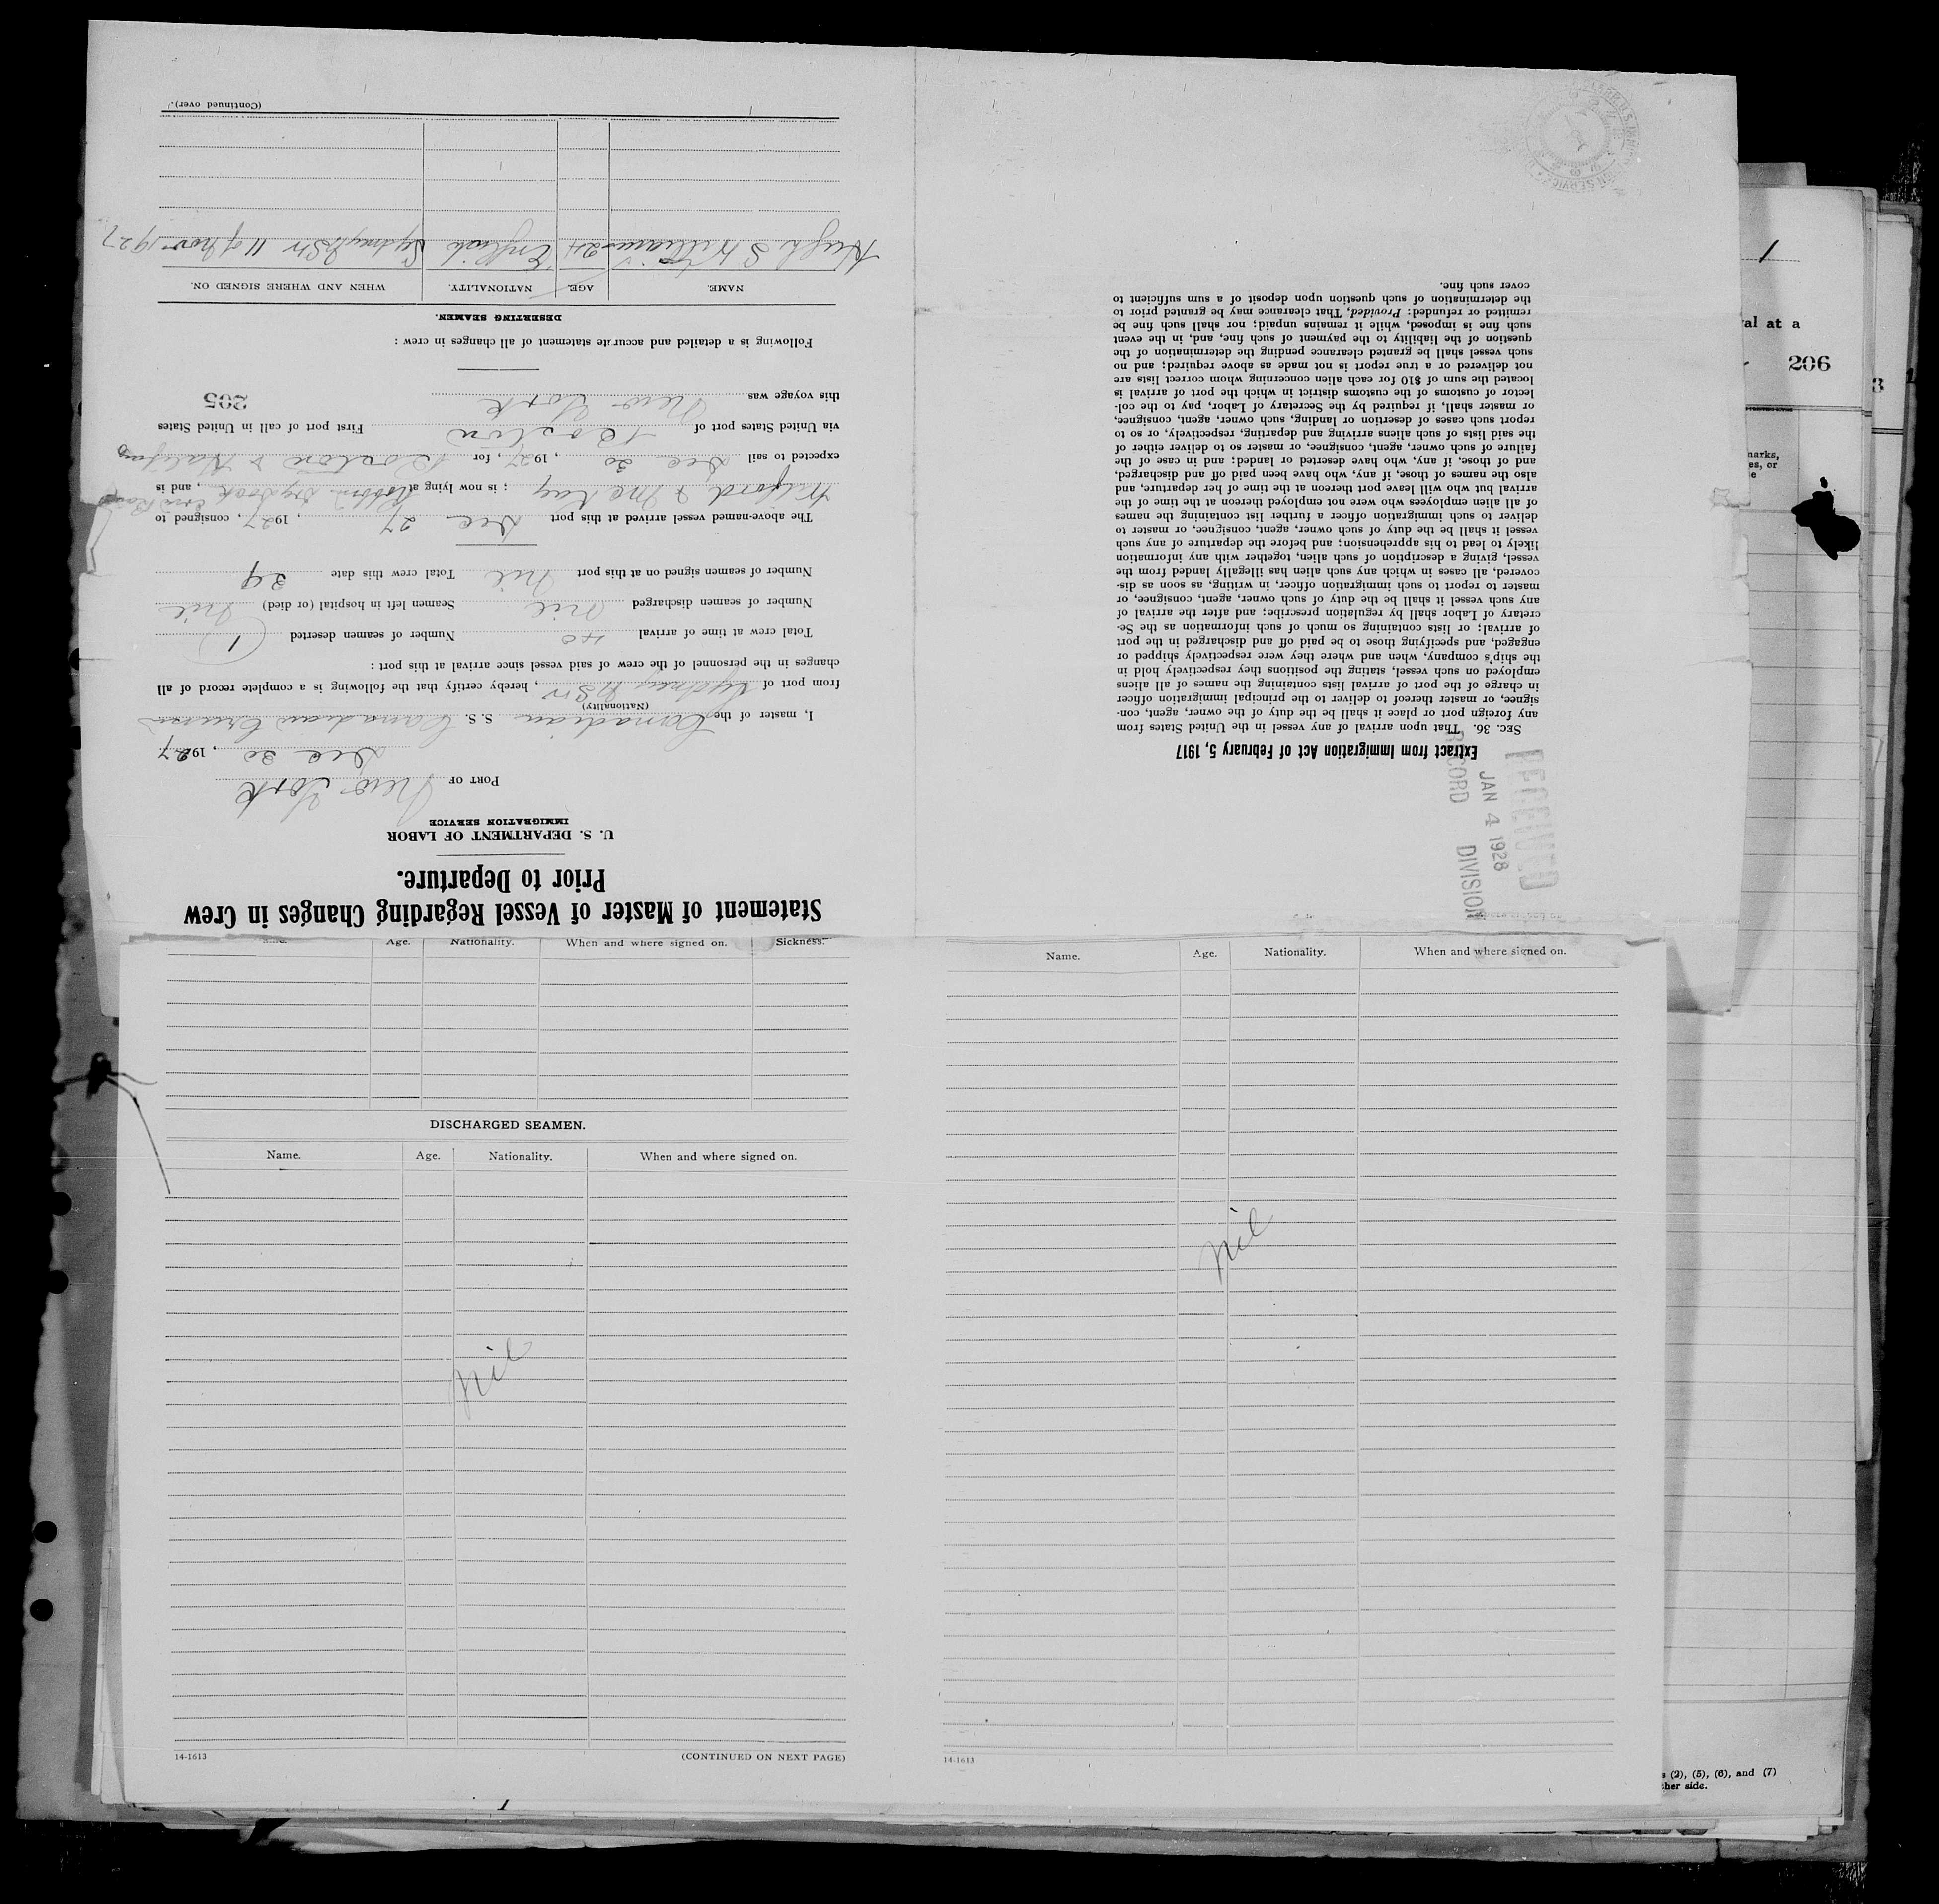 Statement of Master of Vessel Regarding Changes in Crew
Prior to Departure.
U. S. DEPARTMENT OF LABOR
IMMIGRATION SERVICE
PORT OF New York
Dec 30, 1927
I, master of the Canadian S. S. Canadian
(Nationality)
from port of Sydney NSW, hereby certify that the following is a complete record of all
changes in the personnel of the crew of said vessel since arrival at this port :
Total crew at time of arrival 40 Number of seamen deserted 1
Number of seamen discharged Nil Seamen left in hospital (or died) Nil
Number of seamen signed on at this port Nil Total crew this date 39
The above-named vessel arrived at this port Dec 27, 1927, consigned to
& McKay ; is now lying at Robbins Dry Dock, and is
expected to sail Dec 30, 1927, for Boston & Halifax
via United States port of Boston First port of call in United States
this voyage was New York
205
Following is a detailed and accurate statement of all changes in crew :
DESERTING SEAMEN.
NAME. AGE. NATIONALITY. WHEN AND WHERE SIGNED ON.
Hugh S 24 English Sydney NSW 11 of Nov 1927
(Continued over).
Extract from Immigration Act of February 5, 1917
SEC. 36. That upon arrival of any vessel in the United States from
any foreign port or place it shall be the duty of the owner, agent, con-
signee, or master thereof to deliver to the principal immigration officer
in charge of the port of arrival lists containing the names of all aliens
employed on such vessel, stating the positions they respectively hold in
the ship's company, when and where they were respectively shipped or
engaged, and specifying those to be paid off and discharged in the port
of arrival; or lists containing so much of such information as the Se-
cretary of Labor shall by regulation prescribe; and after the arrival of
any such vessel it shall be the duty of such owner, agent, consignee, or
master to report to such immigration officer, in writing, as soon as dis-
covered, all cases in which any such alien has illegally landed from the
vessel, giving a description of such alien, together with any information
likely to lead to his apprehension; and before the departure of any such
vessel it shall be the duty of such owner, agent, consignee, or master to
deliver to such immigration officer a further list containing the names
of all alien employees who were not employed thereon at the time of the
arrival but who will leave port thereon at the time of her departure, and
also the names of those, if any, who have been paid off and discharged,
and of those, if any, who have deserted or landed; and in case of the
failure of such owner, agent, consignee, or master so to deliver either of
the said lists of such aliens arriving and departing, respectively, or so to
report such cases of desertion or landing, such owner, agent, consignee,
or master shall, if required by the Secretary of Labor, pay to the col-
lector of customs of the customs district in which the port of arrival is
located the sum of $10 for each alien concerning whom correct lists are
not delivered or a true report is not made as above required; and no
such vessel shall be granted clearance pending the determination of the
question of the liability to the payment of such fine, and, in the event
such fine is imposed, while it remains unpaid; nor shall such fine be
remitted or refunded: Provided, That clearance may be granted prior to
the determination of such question upon deposit of a sum sufficient to
cover such fine.
RECEIVED
JAN 4 1928
RECORD DIVISION
Age. Nationality. When and where signed on. Sickness.
DISCHARGED SEAMEN.
Name. Age. Nationality. When and where signed on.
Nil
14-1613 (CONTINUED ON NEXT PAGE)
Name. Age. Nationality. When and where signed on.
Nil
14-1613
1
al at a
206
narks,
es, or
e
3
(2), (5), (6), and (7)
her side.